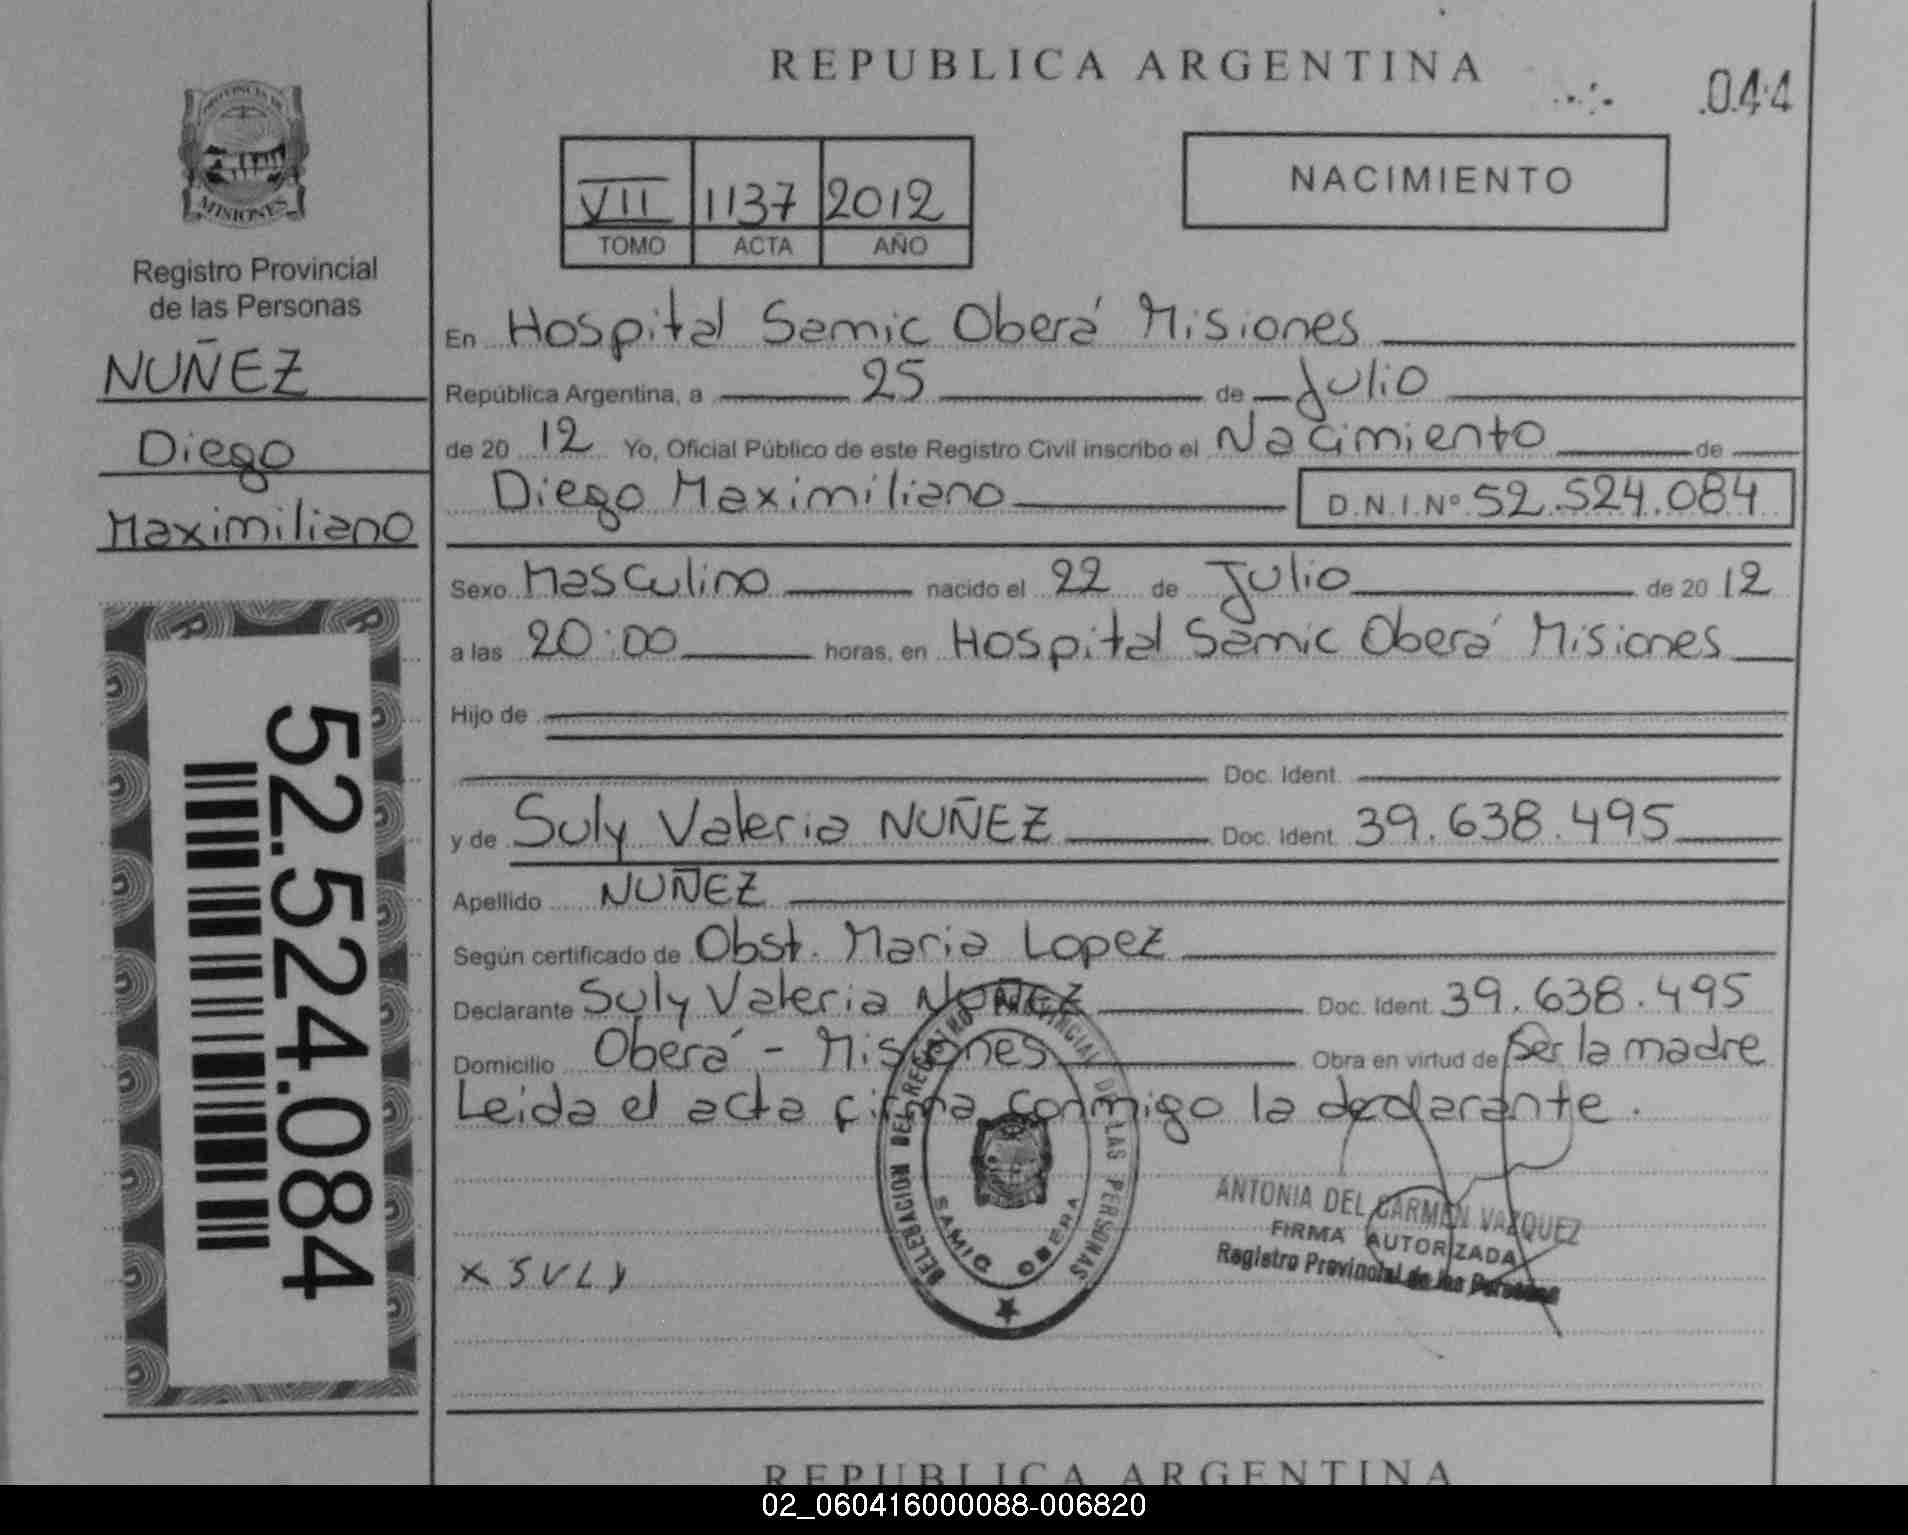 REPUBLICA ARGENTINA
.044
PROVINCIA DE
MISIONES
Registro Provincial
de las Personas
NUÑEZ
Diego
Maximiliano
52.524.084
VII 1137 2012
TOMO ACTA AÑO
NACIMIENTO
En Hospital Samic Oberá Misiones
República Argentina, a 25 de Julio
de 20 12 Yo, Oficial Público de este Registro Civil inscribo el Nacimiento de
Diego Maximiliano D.N.I.Nº 52.524.084
Sexo Masculino nacido el 22 de Julio de 20 12
a las 20:00 horas, en Hospital Samic Oberá Misiones
Hijo de
Doc. Ident.
y de Suly Valeria NUÑEZ Doc. Ident. 39.638.495
Apellido NUÑEZ
Según certificado de Obst. Maria Lopez
Declarante Suly Valeria NUÑEZ Doc. Ident. 39.638.495
Domicilio Oberá - Misiones Obra en virtud de Ser la madre
Leida el acta firma conmigo la declarante.
DELEGACION DEL REGISTRO PROVINCIAL DE LAS PERSONAS
SAMIC OBERA
ANTONIA DEL CARMEN VAZQUEZ
FIRMA AUTORIZADA
Registro Provincial de las Personas
x SULY
REPUBLICA ARGENTINA
02_060416000088-006820